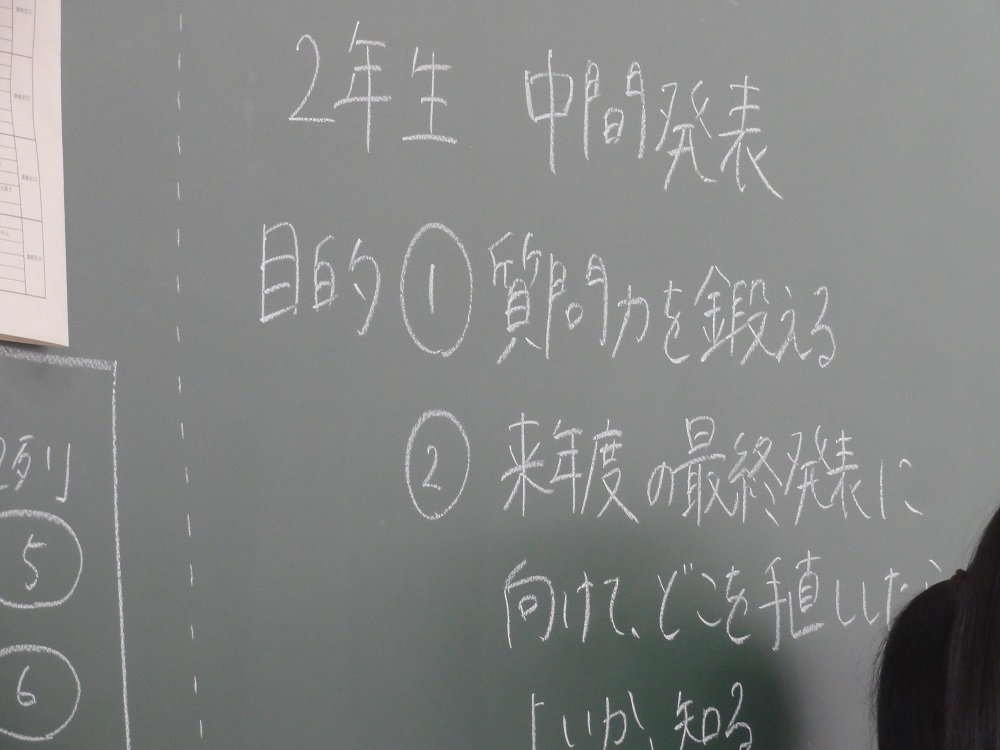 2年生 中間発表
目的 ① 質問力を鍛える
② 来年度の最終発表に
向けて、どこを手直しした
よいか、知る
列
⑤
⑥